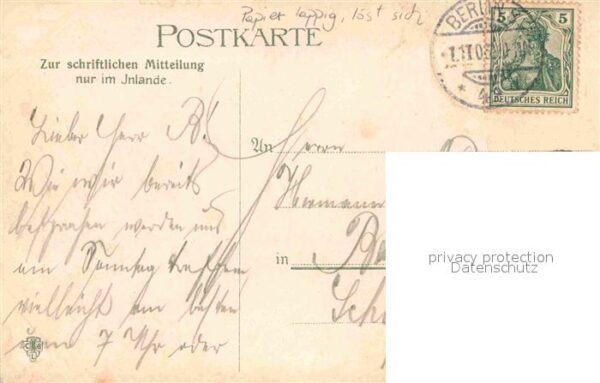 Papier lappig, löst sich
POSTKARTE
Zur schriftlichen Mitteilung
nur im Jnlande.
BERLIN
5 5
DEUTSCHES REICH
Lieber Herr B!
Wie wir bereits
besprachen werden uns
am Sonntag treffen
vielleicht am besten
7 Uhr oder
An Herrn
Hermann
in
privacy protection
Datenschutz